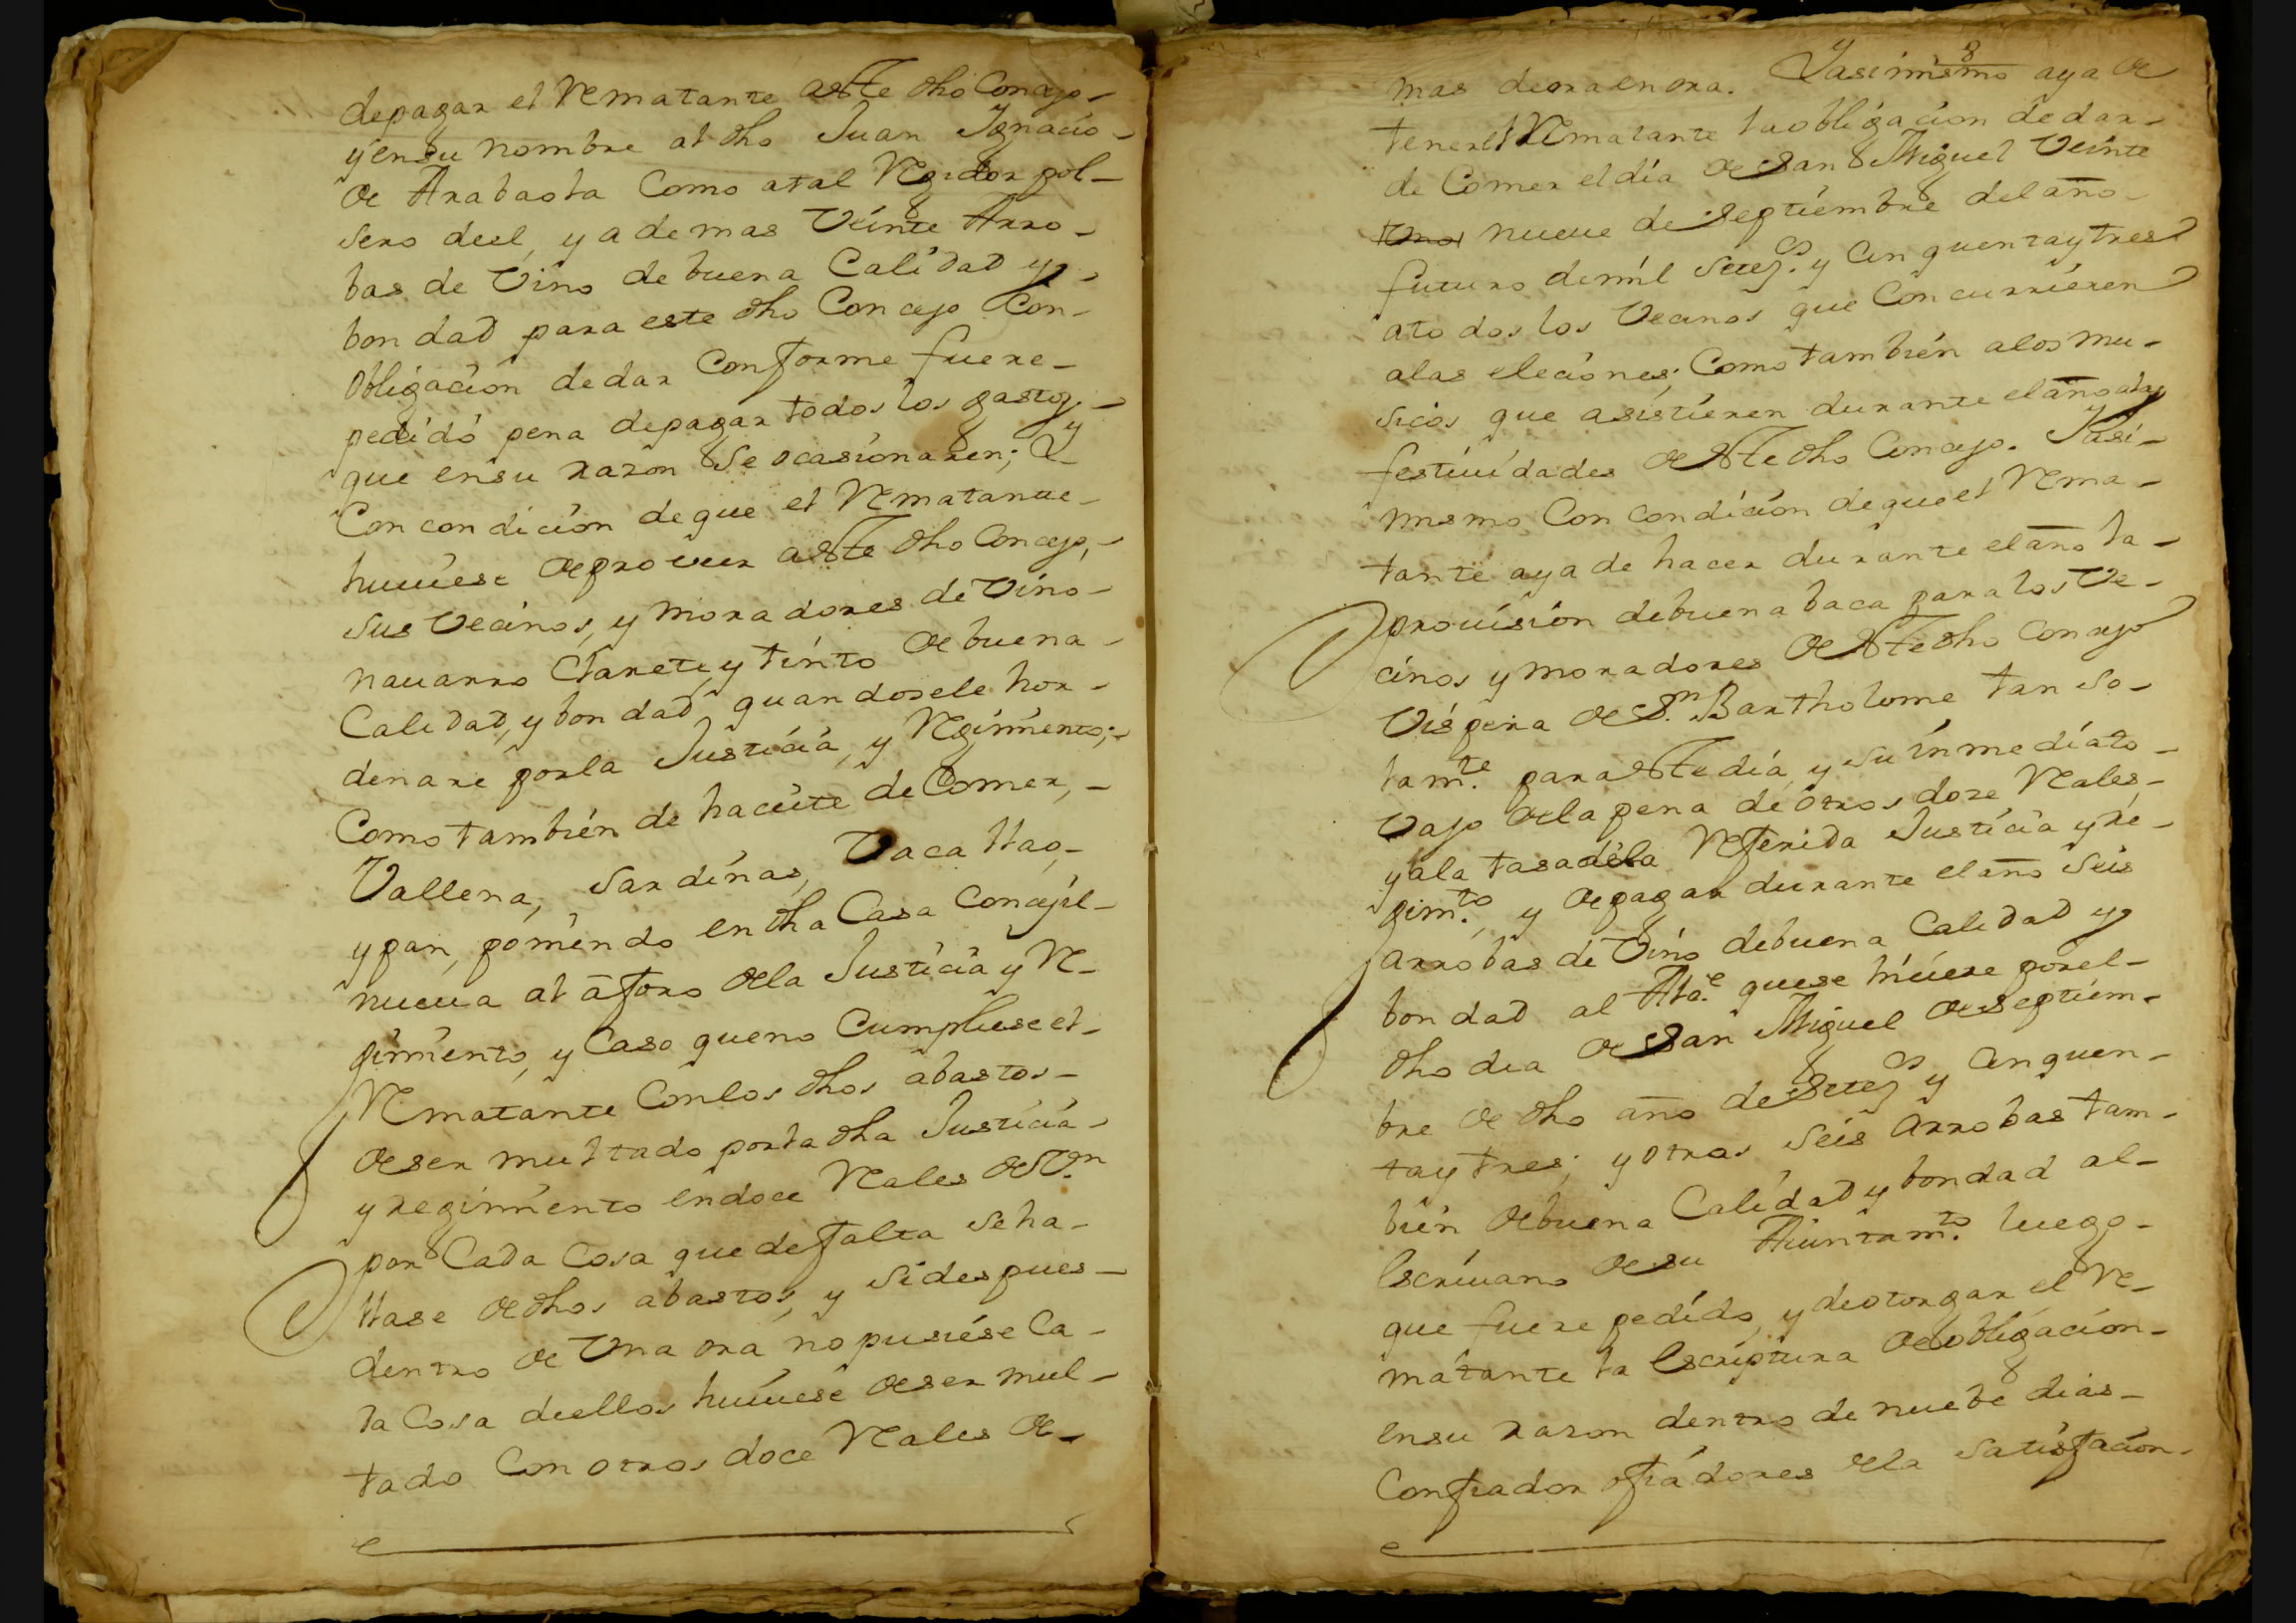 de pagar el Rematante a este dho Concejo-
y en su nombre al dho Juan Ignacio-
de Arabaola Como a tal Regidor pol-
sero de el, y ademas Veinte Arro-
bas de Vino de buena Calidad y-
bondad para este dho Concejo Con-
obligacion de dar Conforme fuere-
pedido pena de pagar todos los gastos-
que en su razon se ocasionaren; Y
Con condicion de que el Rematante-
huuiese de proveer a este dho Concejo,-
sus Vecinos, y moradores de Vino-
nauarro Clarete, y tinto de buena-
Calidad, y bondad quando se le hor-
denare por la Justicia, y Regimiento;-
Como tambien de haceite de Comer,-
Vallena, Sardinas, Vacallao,-
y pan, poniendo en dha Casa Concejil-
nueua al aforo de la Justicia y Re-
gimiento, y Caso que no Cumpliese el-
Rematante Con los dhos abastos-
de ser multado por la dha Justicia-
y regimiento en doce Reales de Vn
por Cada Cosa que de falta se ha-
llase de dhos abastos, y si despues-
dentro de Una ora no pusiése Ca-
la Cosa de ellos huuiese de ser mul-
tado Con otros doce Reales de-
8
mas de ora en ora. Y asimismo aya de
tener el Rematante la obligacion de dar-
de Comer el dia de San Miguel Veinte
nueue de Septiembre del año-
futuro de mil setezs. y Cinquenta y tres
a todos los Vecinos que Concurrieren
a las eleciones; Como tambien a los mu-
sicos que asistieren durante el año a las
festiuidades de este dho Concejo. Y asi-
mismo Con condicion de que el Rema-
tante aya de hacer durante el año la-
prouision de buena baca para los Ve-
cinos y moradores de este dho Concejo
Vispera de Sn. Bartholome tan so-
lamte. para este dia, y su inmediato-
Vajo de la pena de otros doze Reales-
y a la tasa de la Referida Justicia y re-
gimto., y de pagar durante el año seis
arrobas de Vino de buena Calidad y
bondad al Alce. que se hiciere por el-
dho dia de San Miguel de Septiem-
bre de dho año de setezs y Cinquen-
ta y tres; y otras seis arrobas tam-
bien de buena Calidad y bondad al-
Escriuano de su Aiuntamto. luego-
que fuere pedido, y de otorgar el Re-
matante la Escriptura de obligacion-
en su razon dentro de nuebe dias-
Con fiador o fiadores de la satisfacion-